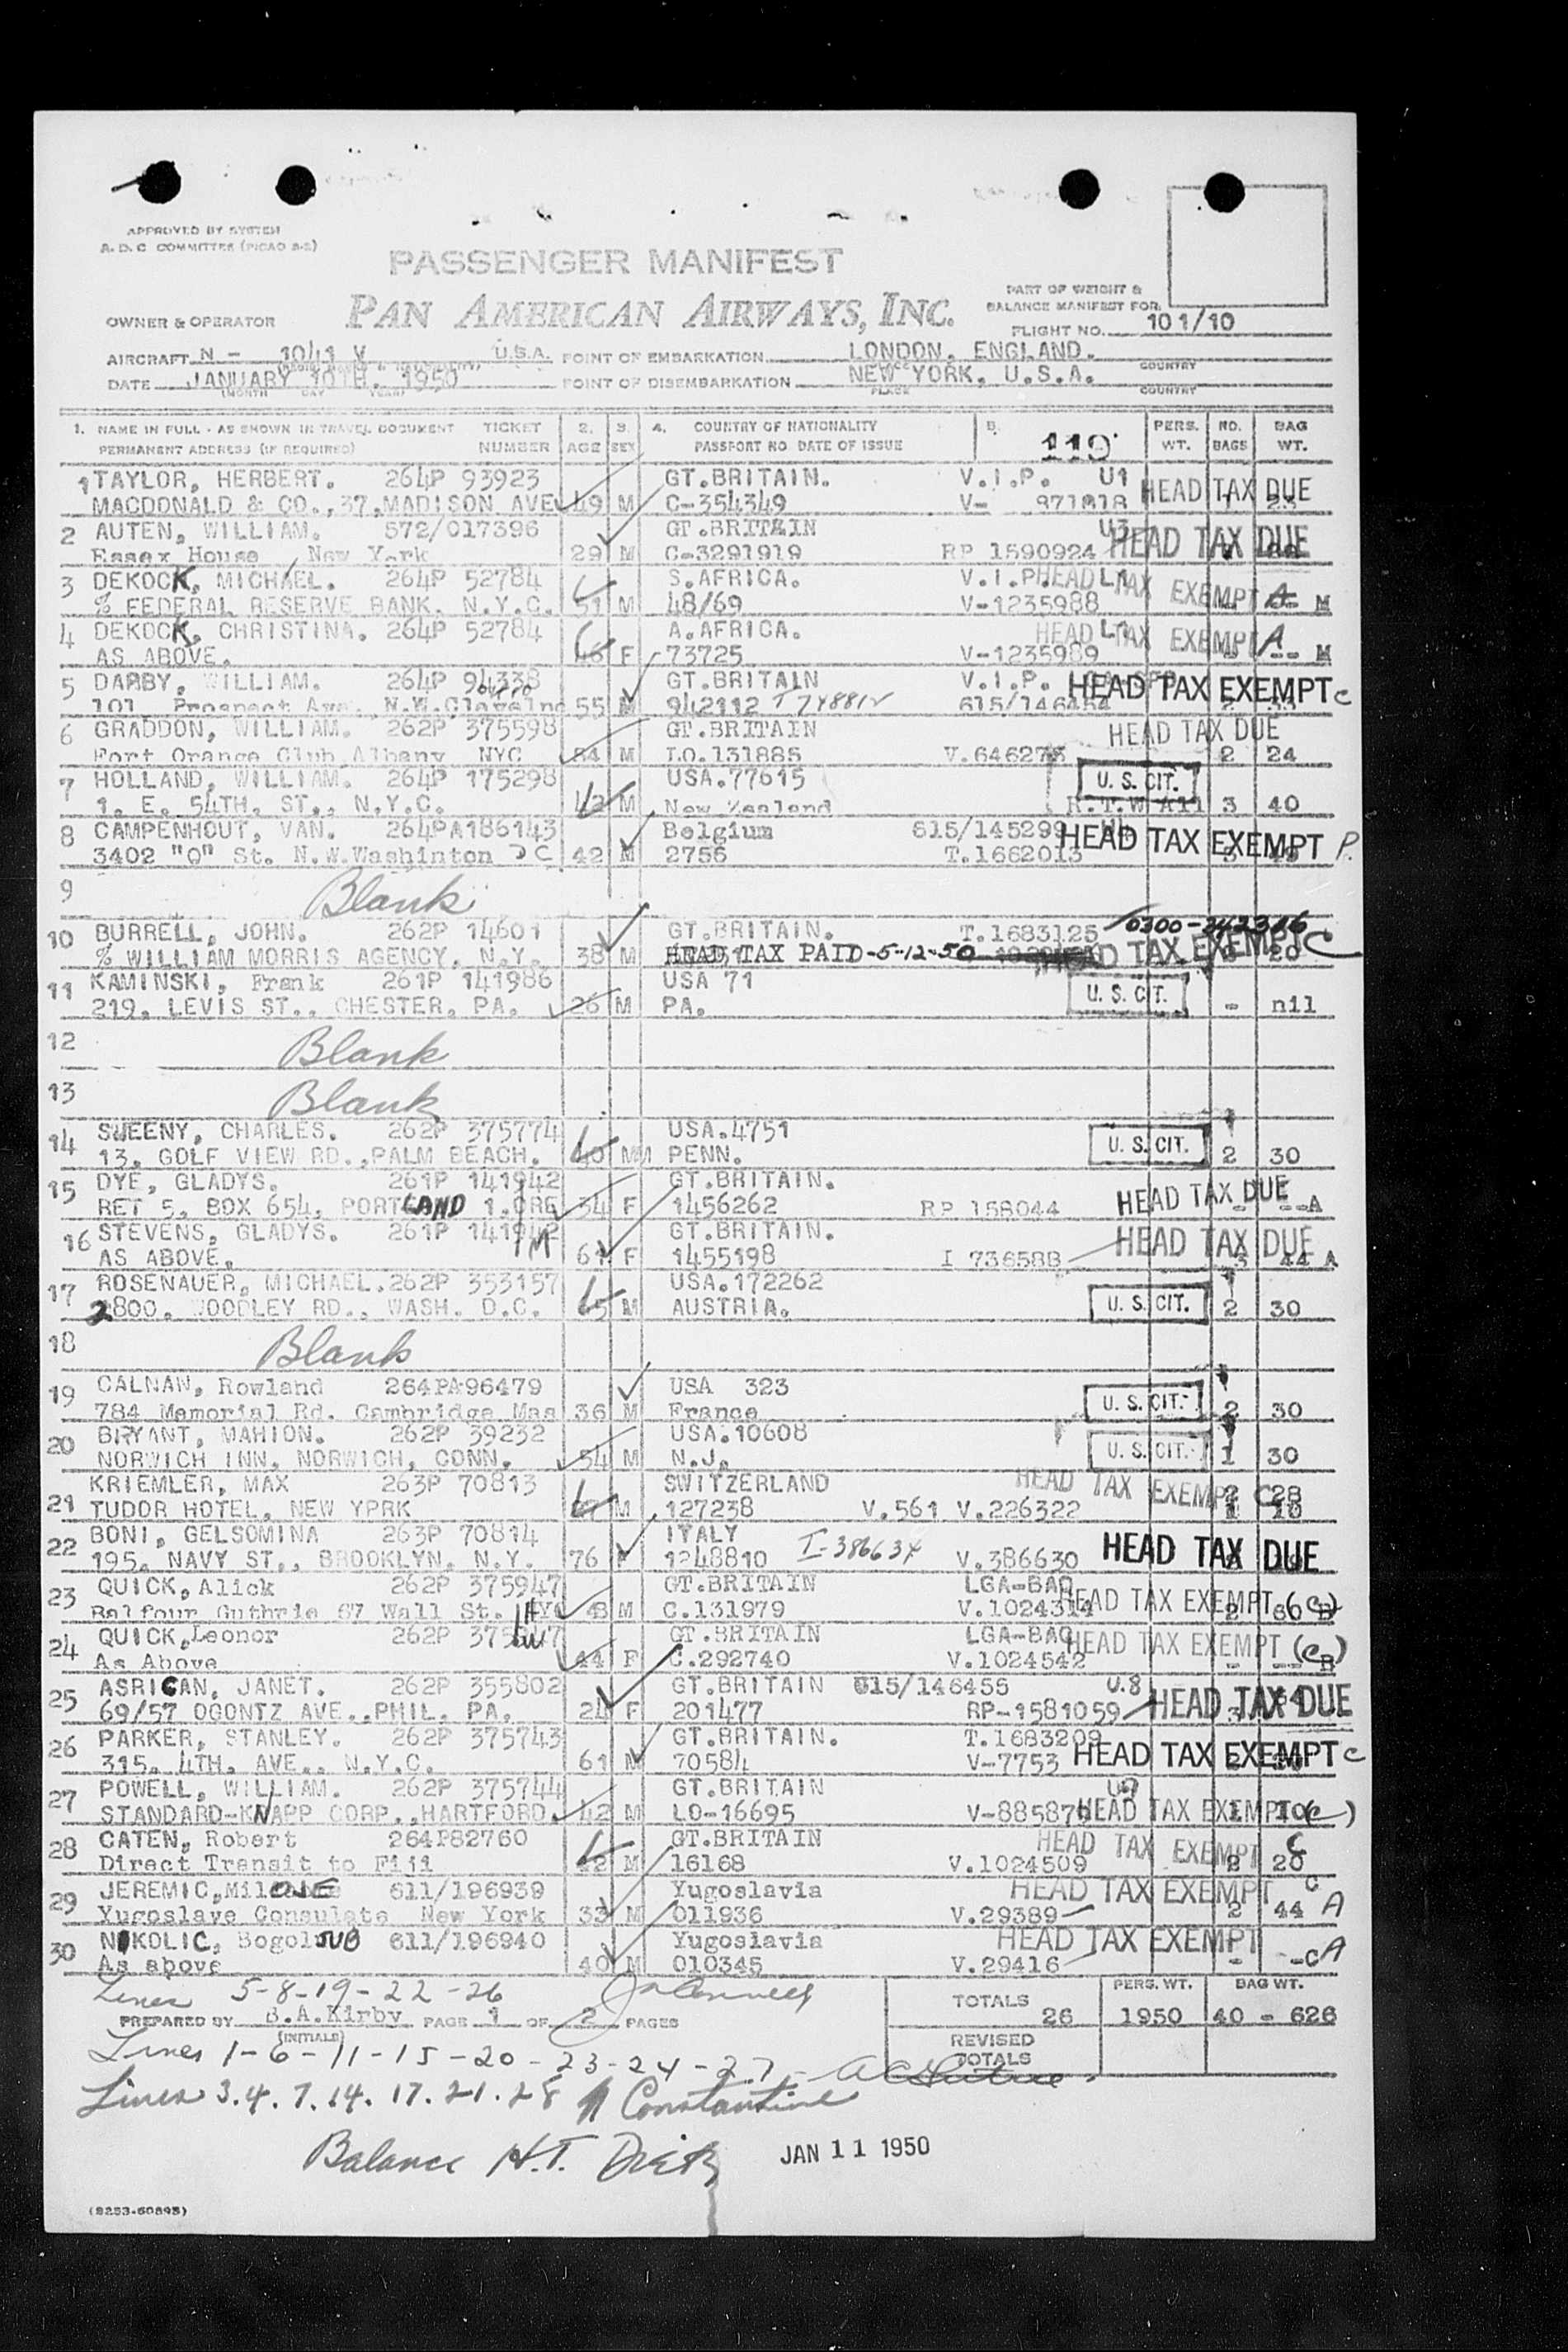 APPROVED BY SYSTEM
A.D.C COMMITTEE (PICAO 2-2)
PASSENGER MANIFEST
PAN AMERICAN AIRWAYS, INC.
PART OF WEIGHT &
BALANCE MANIFEST FOR
FLIGHT NO. 101/10
OWNER & OPERATOR
AIRCRAFT N - 1041 V U.S.A. POINT OF EMBARKATION LONDON, ENGLAND.
DATE JANUARY 10TH. 1950 POINT OF DISEMBARKATION NEW YORK, U.S.A.
(MONTH DAY YEAR) PLACE COUNTRY
1. NAME IN FULL - AS SHOWN IN TRAVEL DOCUMENT TICKET 2. 3. 4. COUNTRY OF NATIONALITY 5. PERS. NO. BAG
PERMANENT ADDRESS (IF REQUIRED) NUMBER AGE SEX PASSPORT NO DATE OF ISSUE 119 WT. BAGS WT.
1 TAYLOR, HERBERT. 264P 93923 GT.BRITAIN. V.I.P. U1 HEAD TAX DUE
MACDONALD & CO.,37,MADISON AVE 49 M C-354349 V- 871818
2 AUTEN, WILLIAM. 572/017396 GT.BRITAIN U3 HEAD TAX DUE
Essex House New York 29 M C-3291919 RP 1590924
3 DEKOCK, MICHAEL. 264P 52784 S.AFRICA. V.I.P. HEAD TAX EXEMPT A
% FEDERAL RESERVE BANK, N.Y.C. 51 M 48/69 V-1235988 M
4 DEKOCK, CHRISTINA. 264P 52784 A.AFRICA. HEAD TAX EXEMPT A
AS ABOVE. 46 F 73725 V-1235989 -- M
5 DARBY, WILLIAM. 264P 94338 GT.BRITAIN V.I.P. HEAD TAX EXEMPT C
101 Prospect Ave. N.W.Cleveland 55 M 942112 615/146454
6 GRADDON, WILLIAM. 262P 375598 GT.BRITAIN HEAD TAX DUE
Fort Orange Club Albany NYC 54 M LO.131885 V.646273 2 24
7 HOLLAND, WILLIAM. 264P 175298 USA.77615 U.S. CIT.
1. E. 54TH. ST., N.Y.C. 42 M New Zealand R.T.W All 3 40
8 CAMPENHOUT, VAN. 264PA186143 Belgium 615/145299 HEAD TAX EXEMPT P.
3402 "O" St. N.W.Washinton DC 42 M 2756 T.1662013
9 Blank
10 BURRELL, JOHN. 262P 14601 GT.BRITAIN. T.1683125 0300-342316
% WILLIAM MORRIS AGENCY, N.Y. 38 M HEAD TAX PAID-5-12-50 HEAD TAX EXEMPT C 20
11 KAMINSKI, Frank 261P 141986 USA 71 U.S. CIT.
219. LEVIS ST., CHESTER, PA. 26 M PA. - nil
12 Blank
13 Blank
14 SWEENY, CHARLES. 262P 375774 USA.4751 U.S. CIT.
13. GOLF VIEW RD.,PALM BEACH. 40 M PENN. 2 30
15 DYE, GLADYS. 261P 141942 GT.BRITAIN. HEAD TAX DUE
RET 5, BOX 654, PORTLAND 1.ORE 54 F 1456262 RP 158044 - --A
16 STEVENS, GLADYS. 261P 141942 GT.BRITAIN. HEAD TAX DUE
AS ABOVE. 61 F 1455198 I 736588 3 44 A
17 ROSENAUER, MICHAEL.262P 353157 USA.172262 U.S. CIT.
2800. WOODLEY RD., WASH. D.C. 65 M AUSTRIA. 2 30
18 Blank
19 CALNAN, Rowland 264PA96479 USA 323 U.S. CIT.
784 Memorial Rd. Cambridge Mas 36 M France 2 30
20 BRYANT, MAHION. 262P 39232 USA.10608 U.S. CIT.
NORWICH INN, NORWICH, CONN. 54 M N.J. 1 30
KRIEMLER, MAX 263P 70813 SWITZERLAND HEAD TAX EXEMPT C 2 28
21 TUDOR HOTEL, NEW YPRK M 127238 V.561 V.226322 1 10
22 BONI, GELSOMINA 263P 70814 ITALY I-386634 HEAD TAX DUE
195. NAVY ST., BROOKLYN, N.Y. 76 F 1248810 V.386630
23 QUICK,Alick 262P 375947 GT.BRITAIN LGA-BAQ HEAD TAX EXEMPT
Balfour Guthrie 67 Wall St. NYC 43 M C.131979 V.1024314 2 66
24 QUICK,Leonor 262P 375947 GT.BRITAIN LGA-BAQ HEAD TAX EXEMPT
As Above 44 F C.292740 V.1024542
25 ASRICAN, JANET. 262P 355802 GT.BRITAIN 615/146455 U.8 HEAD TAX DUE
69/57 OGONTZ AVE.,PHIL. PA. 24 F 201477 RP-1581059
26 PARKER, STANLEY. 262P 375743 GT.BRITAIN. T.1683209 HEAD TAX EXEMPT C
315. 4TH. AVE., N.Y.C. 61 M 70584 V-7753
27 POWELL, WILLIAM. 262P 375744 GT.BRITAIN HEAD TAX EXEMPT (C)
STANDARD-KNAPP CORP.,HARTFORD. 42 M LO-16695 V-885876
28 CATEN, Robert 264P82760 GT.BRITAIN HEAD TAX EXEMPT C
Direct Transit to Fiji 42 M 16168 V.1024509 2 20
29 JEREMIC,Miloje 611/196939 Yugoslavia HEAD TAX EXEMPT C
Yugoslave Consulate New York 33 M 011936 V.29389 2 44 A
30 NIKOLIC, BogolJUB 611/196940 Yugoslavia HEAD TAX EXEMPT
As above 40 M 010345 V.29416 - -CA
Lines 5-8-19-22-26
PREPARED BY B.A.Kirby PAGE 1 OF 2 PAGES
(INITIALS)
PERS. WT. BAG WT.
TOTALS 26 1950 40 - 626
REVISED
TOTALS
Lines 1-6-11-15-20-23-24-27-
Lines 3.4.7.14.17.21.28 Constantine
Balance H.T. Dietz JAN 11 1950
(8253-60895)